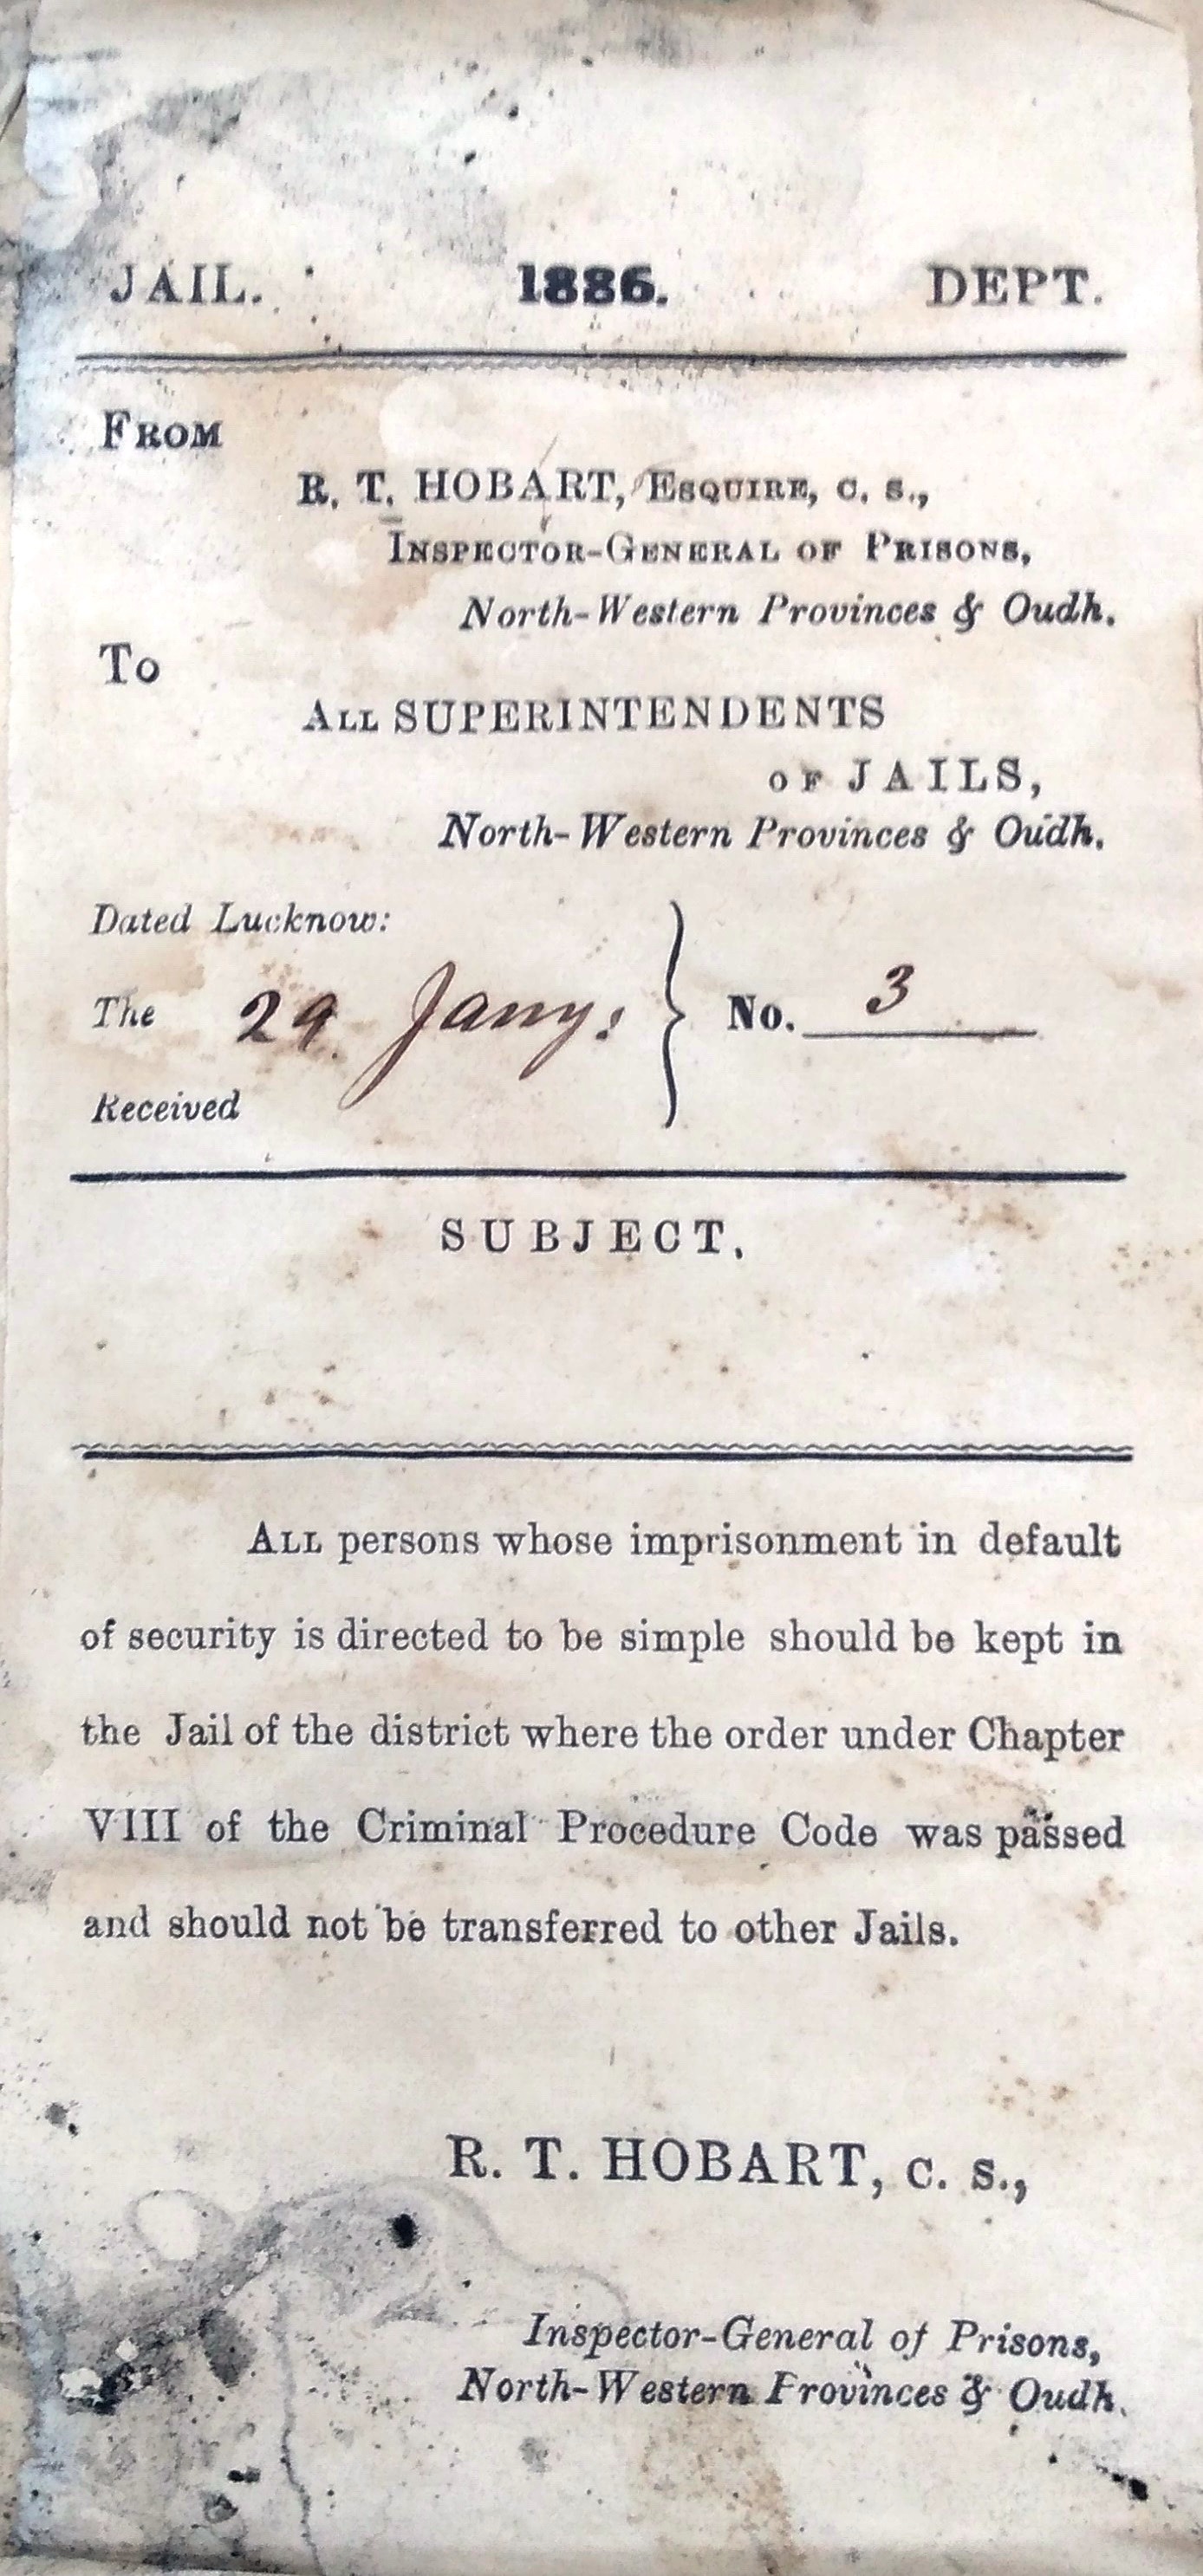 JAIL. 1886. DEPT.
FROM
R. T. HOBART, ESQUIRE, C. S.,
INSPECTOR-GENERAL OF PRISONS,
North-Western Provinces & Oudh.
To
ALL SUPERINTENDENTS
OF JAILS,
North-Western Provinces & Oudh.
Dated Lucknow:
The 29 Jany: } No. 3
Received
SUBJECT.
ALL persons whose imprisonment in default
of security is directed to be simple should be kept in
the Jail of the district where the order under Chapter
VIII of the Criminal Procedure Code was passed
and should not be transferred to other Jails.
R. T. HOBART, C. S.,
Inspector-General of Prisons,
North-Western Provinces & Oudh.